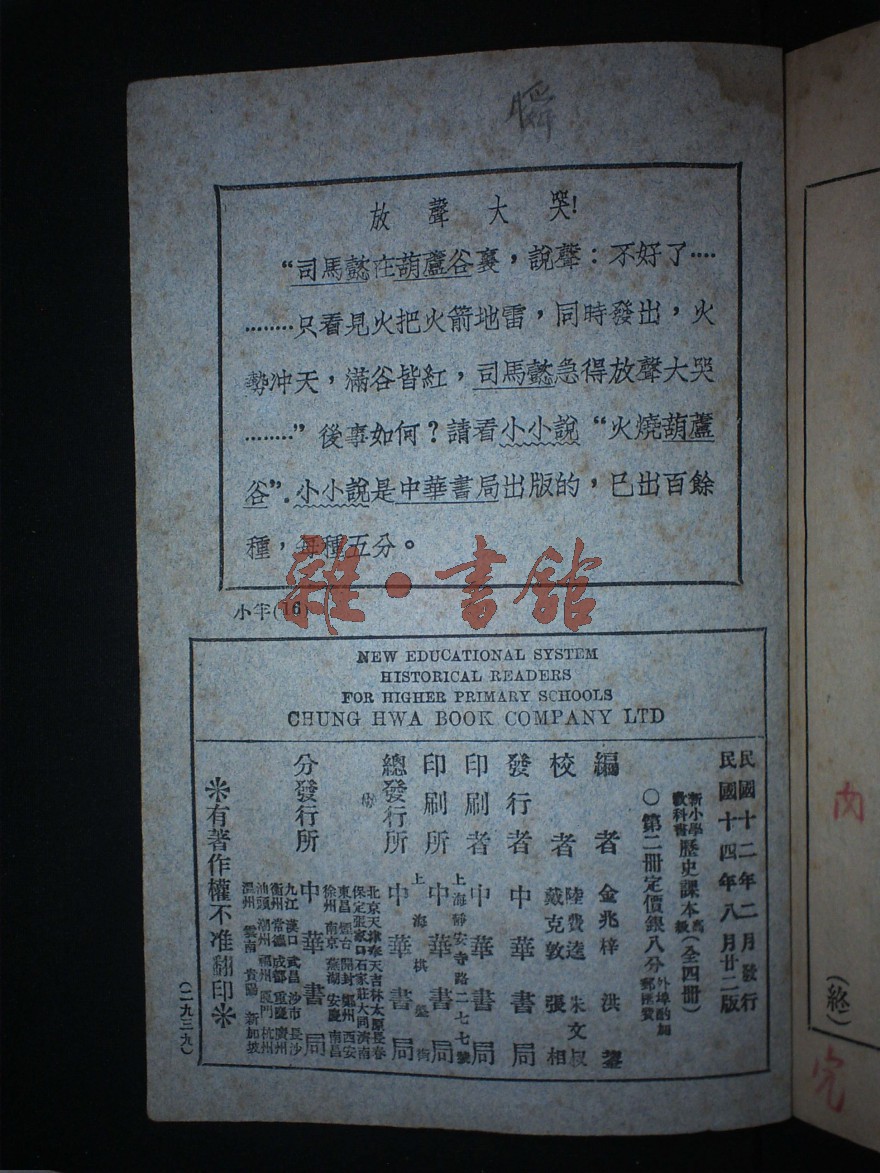 放聲大哭!
“司馬懿在葫蘆谷裏，說聲：不好了····
········只看見火把火箭地雷，同時發出，火
勢冲天，滿谷皆紅，司馬懿急得放聲大哭
········”後事如何？請看小小說“火燒葫蘆
谷”．小小說是中華書局出版的，已出百餘
種，每種五分。
雜·書館
小年(16)
NEW EDUCATIONAL SYSTEM
HISTORICAL READERS
FOR HIGHER PRIMARY SCHOOLS
CHUNG HWA BOOK COMPANY LTD
民國十二年二月發行
民國十四年八月廿二版
新小學教科書歷史課本高級(全四冊)
○第二冊定價銀八分
外埠酌加郵匯費
編者 金兆梓 洪鋆
校者 陸費逵 朱文叔
戴克敦 張相
發行者 中華書局
印刷者 中華書局
上海靜安寺路二七七號
印刷所 中華書局
上海棋盤街
總發行所 中華書局
分發行所 中華書局
北京天津奉天吉林太原長春
保定張家口石家莊大同濟南
東昌 煙台 開封 鄭州 西安
徐州 南京 蕪湖 安慶 南昌
九江 漢口 武昌 沙市 長沙
衡州 常德 成都 重慶 廣州
汕頭 潮州 福州 廈門 杭州
溫州 雲南 貴陽 新加坡
＊有著作權不准翻印＊
(二九三九)
(終)
完